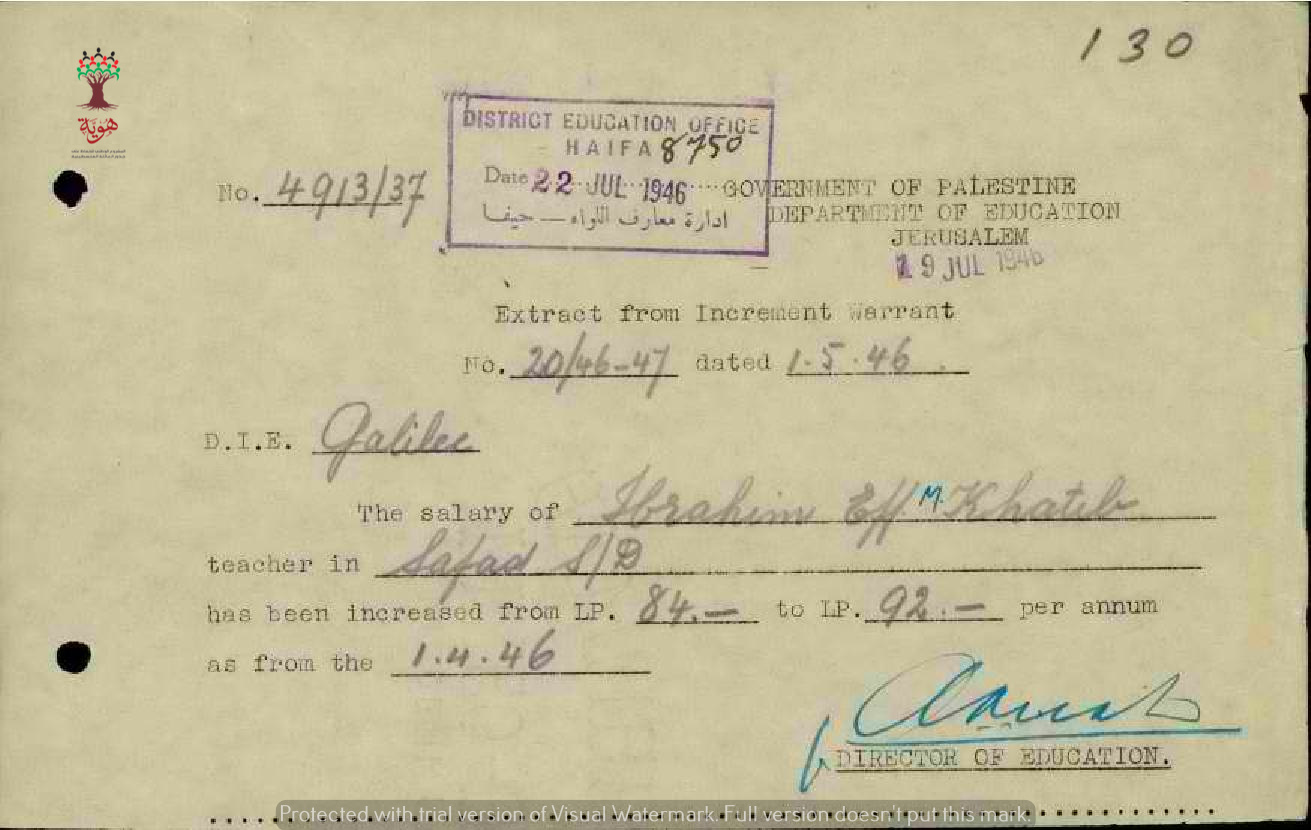 130
هوية
DISTRICT EDUCATION OFFICE
HAIFA 8750
Date 22 JUL 1946
ادارة معارف اللواء — حيفا
No. 4913/37
GOVERNMENT OF PALESTINE
DEPARTMENT OF EDUCATION
JERUSALEM
19 JUL 1946
Extract from Increment Warrant
No. 20/46-47 dated 1.5.46.
D.I.E. Galilee
The salary of Ibrahim Eff M. Khateb
teacher in Safad S/D
has been increased from LP. 84.— to LP. 92.— per annum
as from the 1.4.46
DIRECTOR OF EDUCATION.
Protected with trial version of Visual Watermark. Full version doesn't put this mark.